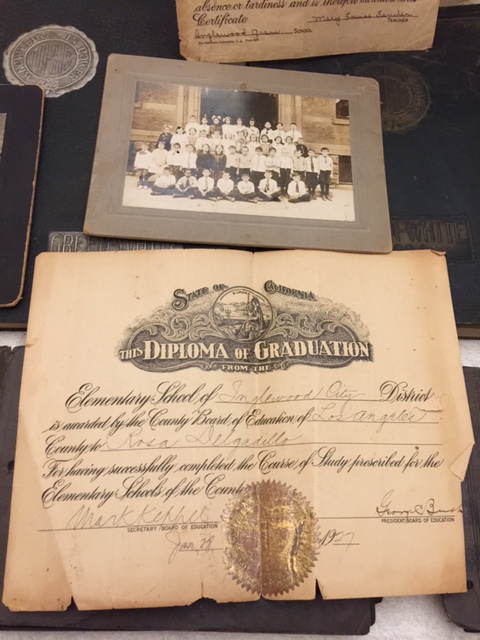 absence or tardiness and is therefore awarded this
Certificate
Mary Louise
TEACHER
Inglewood Gram. School
STATE OF CALIFORNIA
THIS DIPLOMA OF GRADUATION
FROM THE
Elementary School of Inglewood City District
is awarded by the County Board of Education of Los Angeles
County to Rosa Delgadillo
For having successfully completed the Course of Study prescribed for the
Elementary Schools of the County
Mark Keppel
George C. Bush
SECRETARY BOARD OF EDUCATION
PRESIDENT BOARD OF EDUCATION
Jan. 28 1927